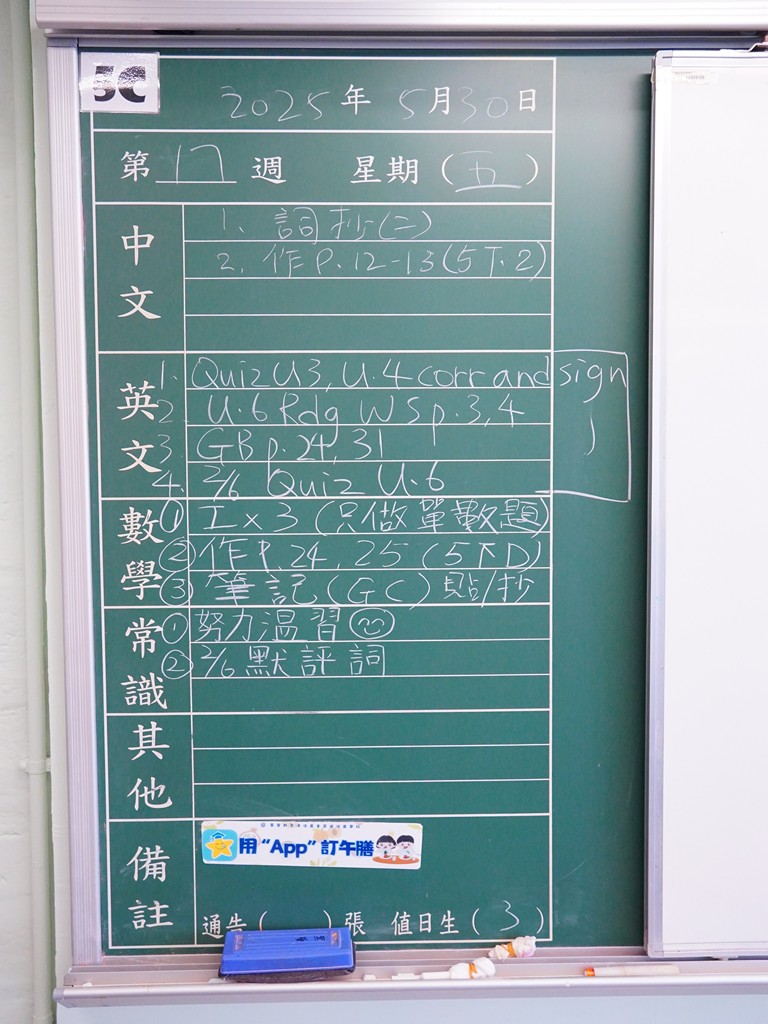 5C
2025年 5月30日
第 17 週 星期(五)
中文
1. 詞抄(二)
2. 作P.12-13(5下.2)
英文
1. Quiz U3, U.4 corr and sign
2 U.6 Rdg WS p.3,4
3. GB p.24,31
4. 2/6 Quiz U.6
數學
① 工x3 (只做單數題)
② 作P.24, 25 (5下D)
③ 筆記(GC)貼/抄
常識
① 努力温習
② 2/6 默評詞
其他
備註
用“App”訂午膳
通告( )張 值日生(3)